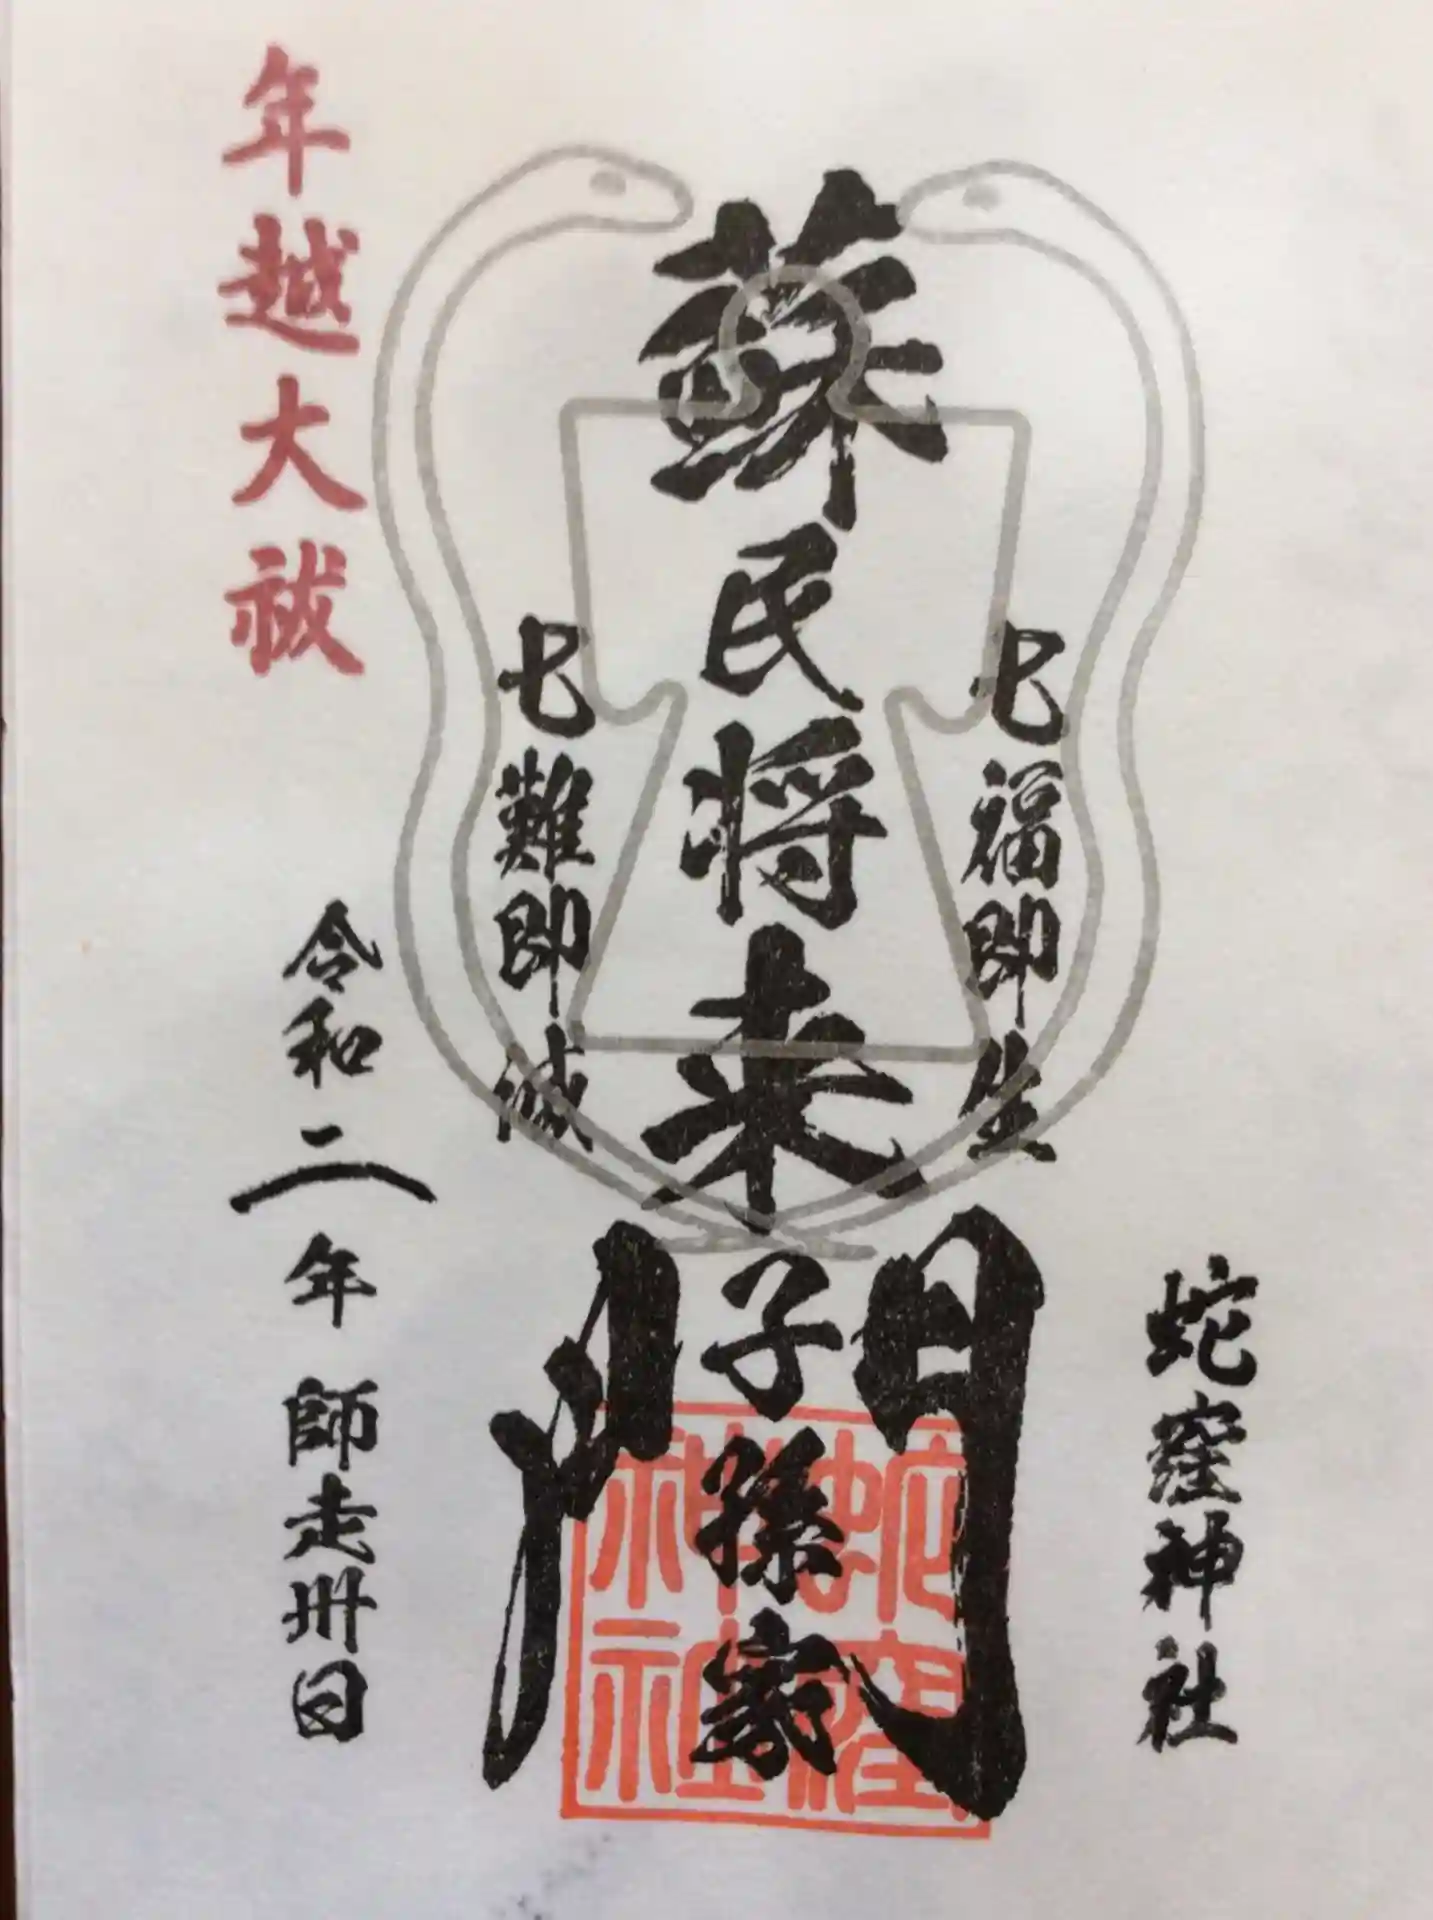 蛇窪神社
七福即生
蘇民将来子孫家門
七難即滅
年越大祓
令和二年師走卅日
蛇窪
神社